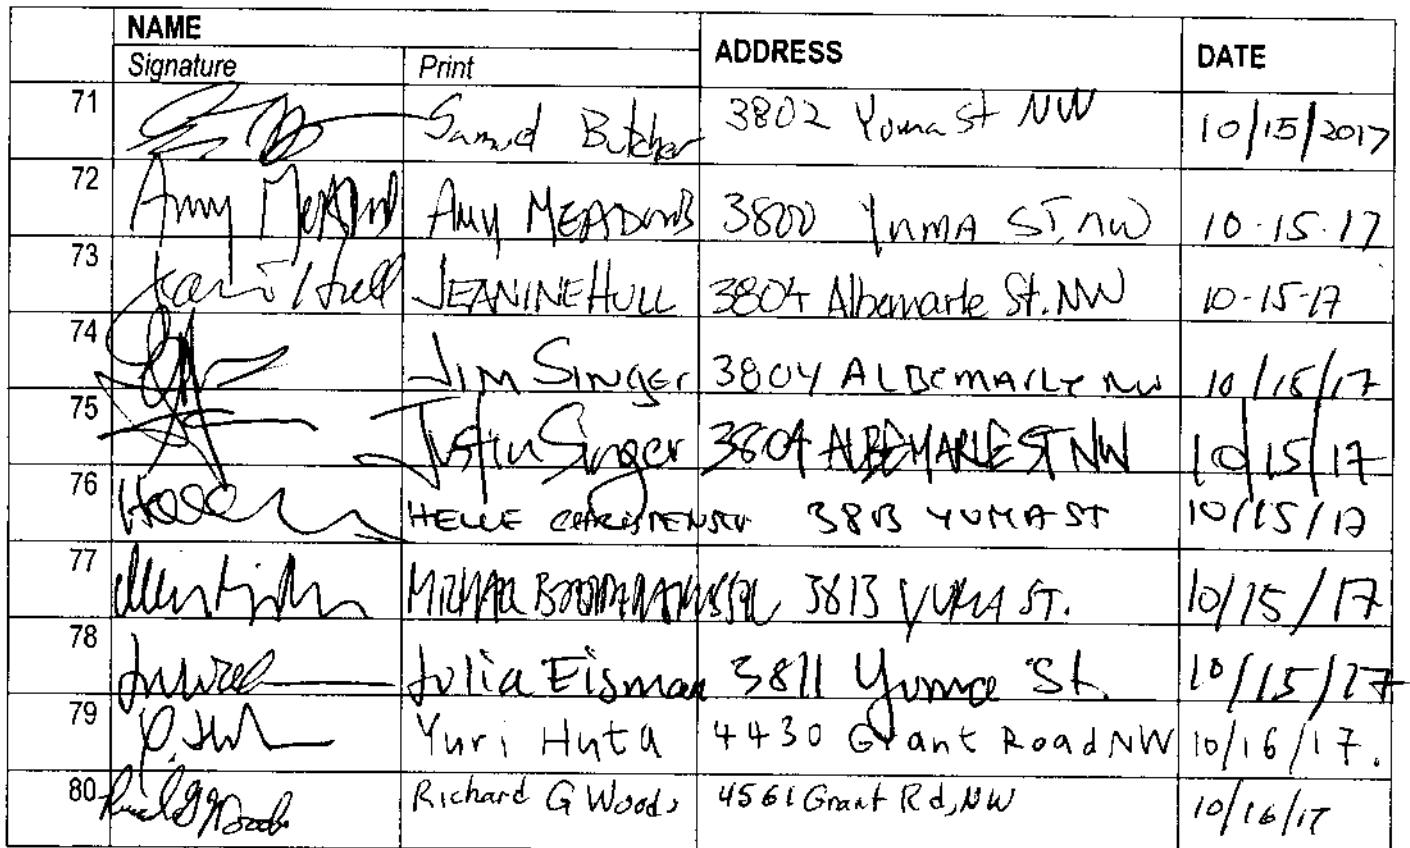 NAME ADDRESS DATE
Signature Print
71 Samuel Butcher 3802 Yuma St NW 10/15/2017
72 Amy Meadows AMY MEADOWS 3800 YUMA ST. NW 10-15-17
73 JEANINE HULL 3804 Albemarle St. NW 10-15-17
74 JIM SINGER 3804 ALBEMARLE NW 10/15/17
75 Justin Singer 3804 ALBEMARLE ST NW 10/15/17
76 HELLE CHRISTENSEN 3813 YUMA ST 10/15/17
77 3813 YUMA ST. 10/15/17
78 Julia Eisman 3811 Yuma St. 10/15/17
79 Yuri Huta 4430 Grant Road NW 10/16/17.
80 Richard G Woods 4561 Grant Rd, NW 10/16/17